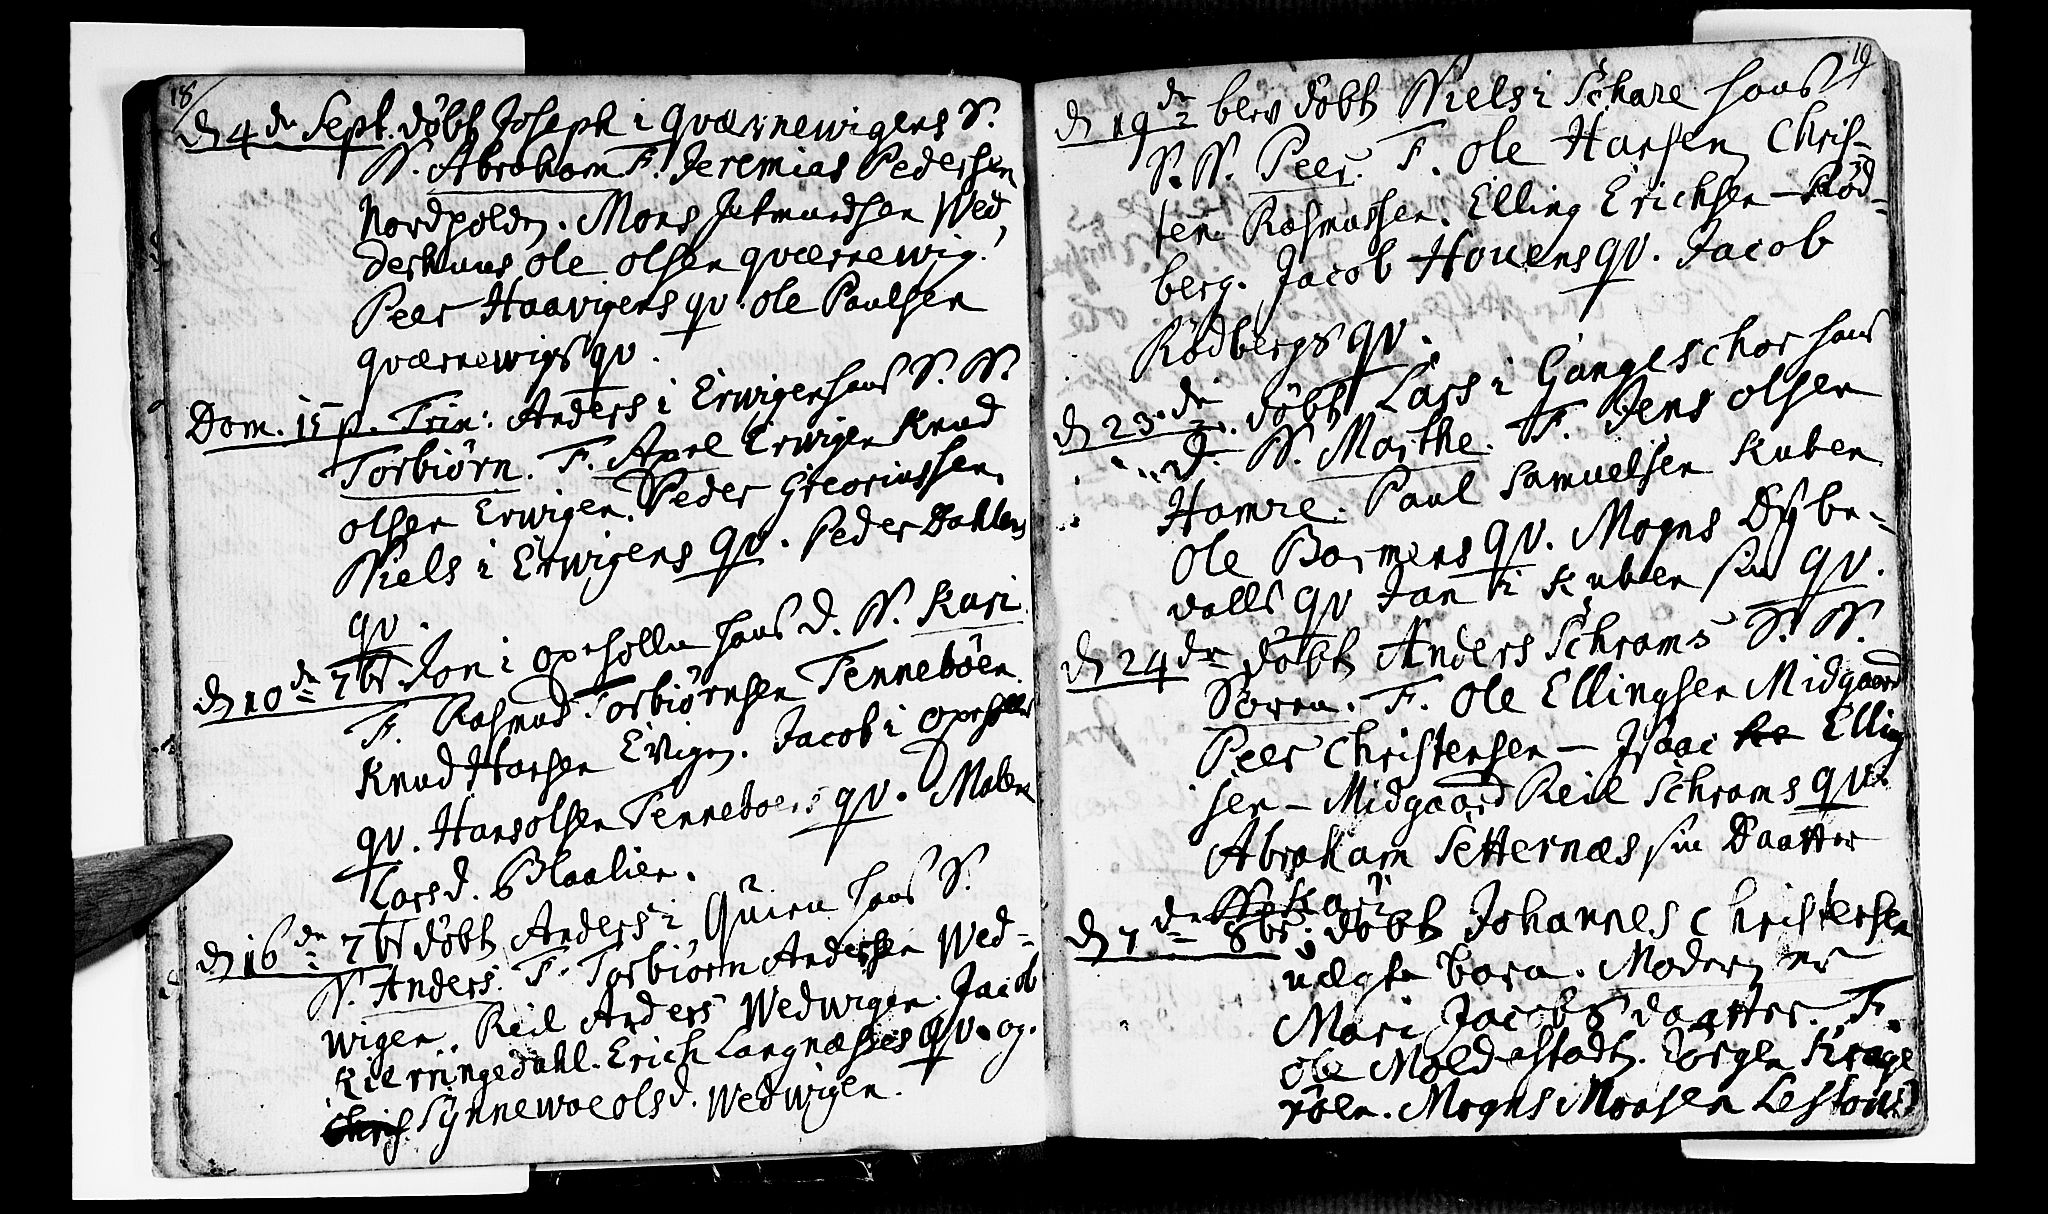 18
d 4 de Sept. døbt Joseph i Qværnewigens S.
N. Abraham F. Jeremias Pedersen
Nordpolden. Mons Jetmundsen Wed
derhuus ole olsen qværnewig.
Peer Haavigens qv. ole Paulsen
qværnewigs qv.
Dom. 15 p. Trin: Anders i Erwigen hans S. N.
Torbiørn. F. Axel Erwigen Knud
olsen Erwigen. Peder Greoriussen
Niels i Erwigens qv. Peder Dahlens
qv.
d 10 de 7br Jon i opshollen hans d. N. Kari
F. Rasmus Torbiørnsen Tennebøen
Knud Hansen Evigen. Jacob i
qv. Hans olsen Tenneboens qv. Malene
Lars d. Blaalien.
d 16 de 7br døbt Anders i hans S.
N. Anders. F. Torbiørn Andersen Wed-
wigen. Reil Anders Wedwigen. Jacob
Kierringedahl. Erich Langnæsses qv. og.
Synnewoe ols d. Wedwigen.
19
d 19 de blev døbt Niels i Schare hans
S. N. Peer. F. ole Hansen Chris-
ten Rasmussen. Elling Erichsen - Rød-
berg. Jacob Houens qv. Jacob
Rødbergs qv.
d 23 de døbt Lars i Gangeschor hans
d. N. Marthe. F. Jens olsen
Hamre. Paul Samuelsen Kuben
ole Barmens qv. Mogns Dybe-
valls qv Jan i Kuben sin qv.
d 24 de døbt Anders Schrams S. N.
Søren. F. ole Ellingsen Midgaard
Peer Christensen - Isaac Elling
sen - Midgaard Reil Schrams qv.
Abraham Setternæs sin Daatter
N. Kari
d 7 de 8br. døbt Johannes Christensen
uægte barn. Moderen er
Mari Jacobs daatter. F.
ole Moldestadt. Jørgen Krage
røen. Mogns Monsen Lestoni